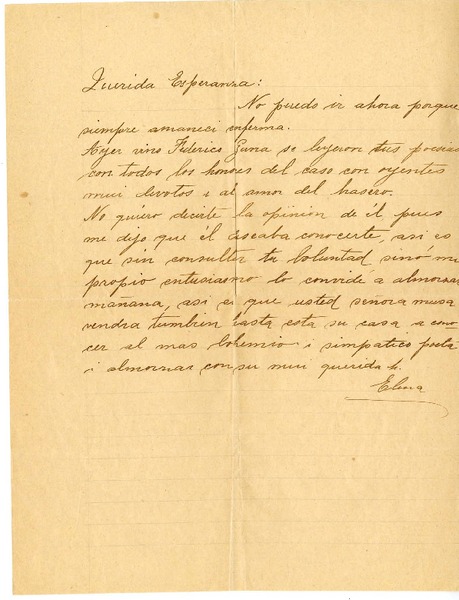 Querida Esperanza:
No puedo ir ahora porque
siempre amaneci enferma.
Ayer vino Federico Gana se leyeron tus poesias
con todos los honores del caso con oyentes
mui devotos i al amor del brasero.
No quiero decirte la opinion de él pues
me dijo que él deseaba conocerte, asi es
que sin consultar tu voluntad sinó mi
propio entusiasmo lo convide a almorzar
mañana, asi es que usted señora musa
vendra tambien hasta esta su casa a cono
cer al mas bohemio i simpatico poeta
i almorzar con su mui querida h.
Elena